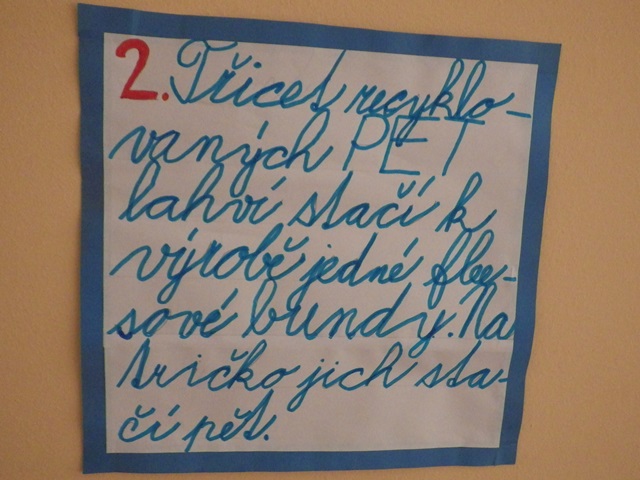 2. Třicet recyklo-
vaných PET
lahví stačí k
výrobě jedné flee-
sové bundy. Na
tričko jich sta-
čí pět.